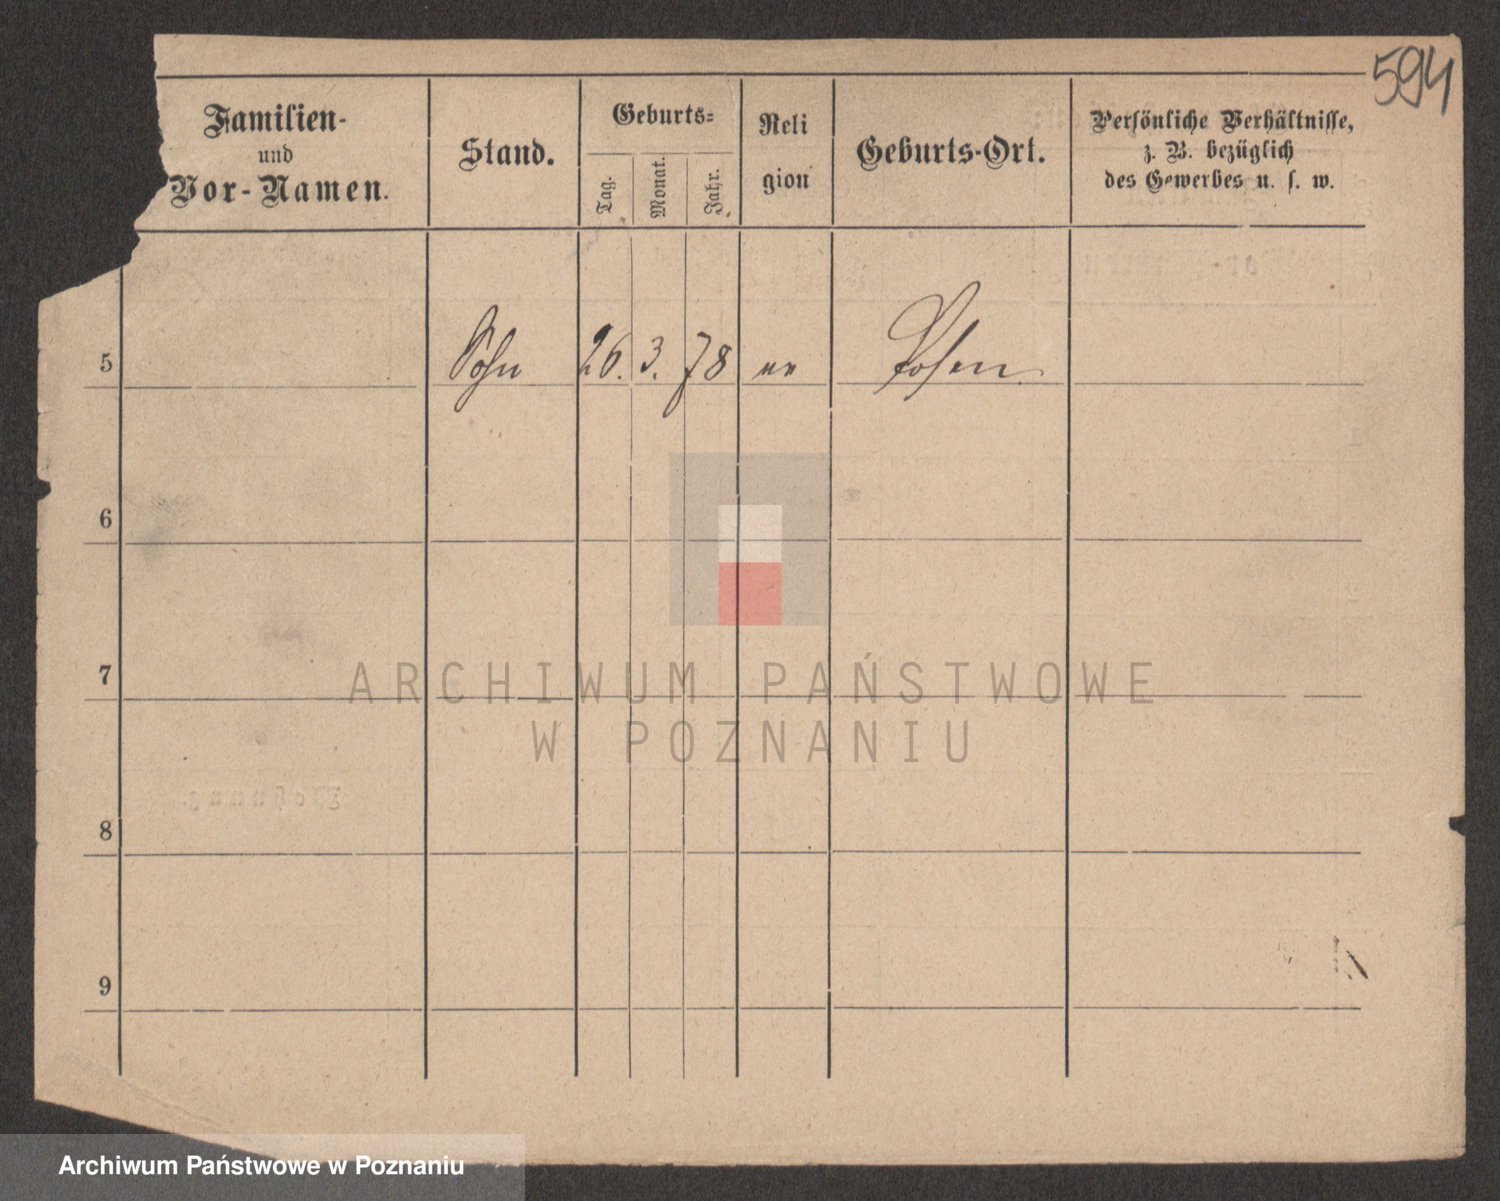 594
Familien-
und
Vor-Namen.
Stand.
Geburts-
Tag.
Monat.
Jahr.
Reli
gion
Geburts-Ort.
Persönliche Verhältnisse,
z. B. bezüglich
des Gewerbes u. s. w.
5 Sohn 26. 3. 78 Posen
6
7
8
9
ARCHIWUM PAŃSTWOWE
W POZNANIU
Archiwum Państwowe w Poznaniu